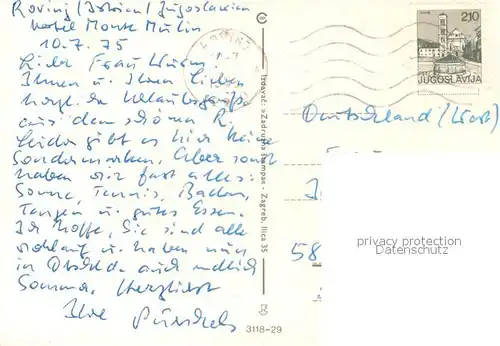 Rovinj / (Istrien) Jugoslawien
Hotel Monte Mulin
10.7.75
Liebe Frau Wurm
Ihnen u. Ihren Lieben
herzliche Urlaubsgrüße
aus dem schönen R.
Leider gibt es hier keine
Sondermarken, aber sonst
haben wir fast alles:
Sonne, Tennis, Baden,
Tanzen u. gutes Essen.
Ich hoffe, Sie sind alle
wohlauf u. haben nun
in Dtschld. auch endlich
Sommer. Herzlichst
Ihre
3118-29
Izdavač: »Zadružna štampa« - Zagreb, Ilica 35
ROVINJ
2,10
JUGOSLAVIJA
Deutschland (West)
58
privacy protection
OLDTHING.DE